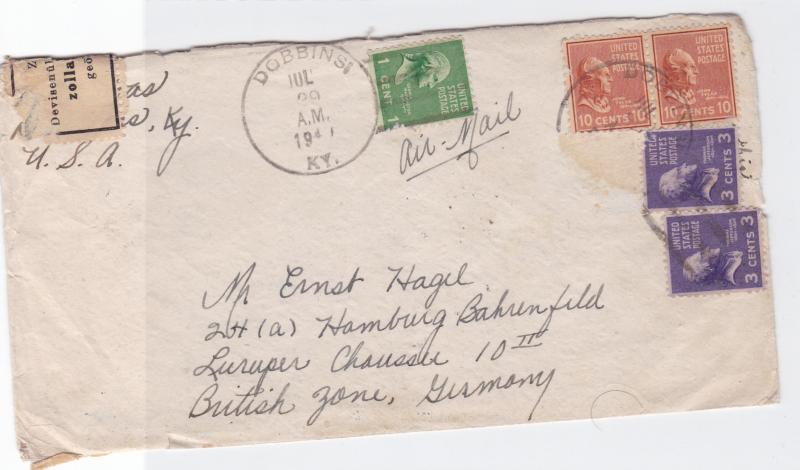 Devisenül
zolla
geö
as
s, Ky.
U. S. A.
DOBBINS
JUL
29
A.M.
KY.
1 CENT 1
UNITED
STATES
POSTAGE
Air-Mail
UNITED
STATES
POSTAGE
JOHN
TYLER
10 CENTS 10
UNITED
STATES
POSTAGE
JOHN
TYLER
10 CENTS 10
UNITED
STATES
POSTAGE
3 CENTS 3
UNITED
STATES
POSTAGE
3 CENTS 3
Mr Ernst Hagel
24 (a) Hamburg Bahrenfeld
Luruper Chaussee 10 II
British Zone, Germany